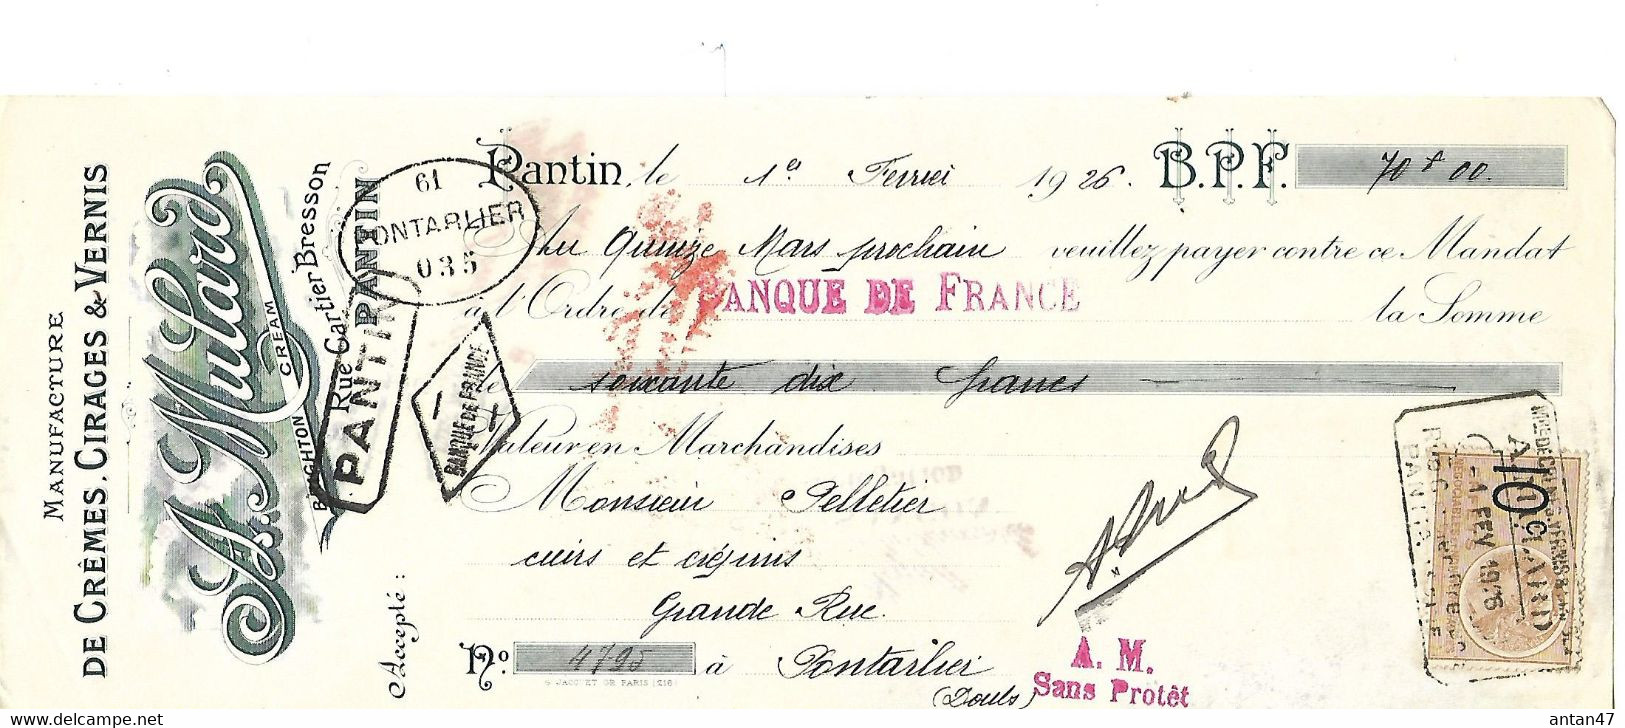 MANUFACTURE
DE CRÊMES, CIRAGES & VERNIS
A. Mulard
CREAM
Rue Cartier Bresson
PANTIN
Pantin, le 1er Fevrier 1926. B.P.F. 70 f 00.
Au Quinze Mars prochain veuillez payer contre ce Mandat
à l'Ordre de BANQUE DE FRANCE la Somme
de soixante dix francs
Valeur en Marchandises
Monsieur Pelletier
cuirs et crépins
Grande Rue
No. 4795 à Pontarlier
(Doubs)
Accepté :
61
PONTARLIER
035
PANTIN
BANQUE DE FRANCE
A. M.
Sans Protêt
10 c
-1 FEV 1926
antan47